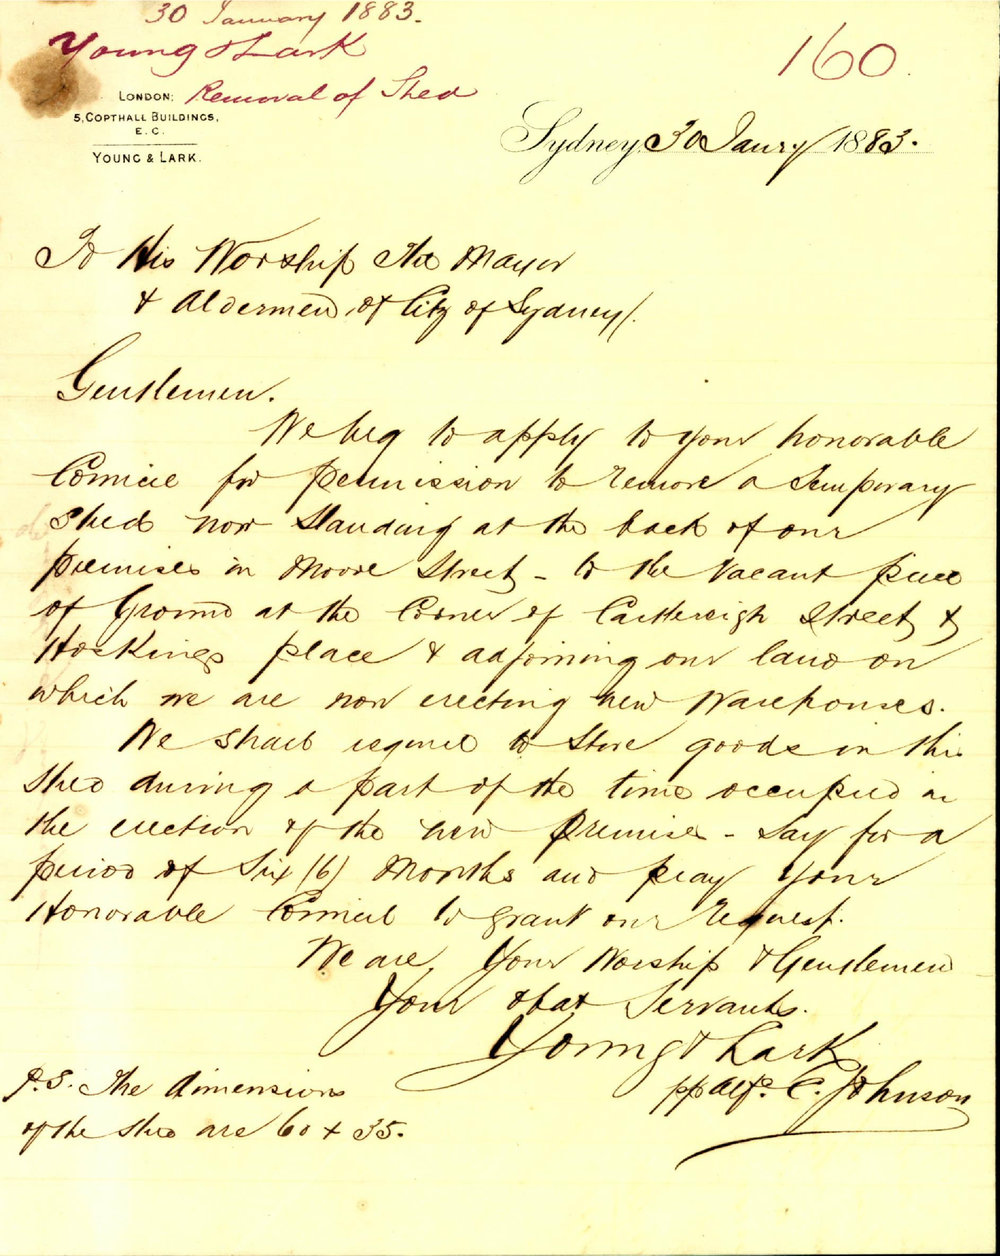 30 January 1883.
Young & Lark
Removal of Shed
160
LONDON:
5, COPTHALL BUILDINGS,
E. C.
YOUNG & LARK.
Sydney, 30 Janry 1883.
To His Worship The Mayor
& Aldermen, of City of Sydney/.
Gentlemen.
We beg to apply to your honorable
Council for permission to remove a temporary
shed now standing at the back of our
premises in Moore Street - to the vacant piece
of Ground at the Corner of Castlereigh Street &
Hoskings place & adjoining our land on
which we are now erecting new Warehouses.
We shall require to store goods in this
shed during a part of the time occupied in
the erection of the new premises - say for a
period of Six (6) Months and pray your
Honorable Council to grant our request.
We are, Your Worship & Gentlemen
Your obdt Servants.
Young & Lark
pp Alfd. C. Johnson
P.S. The dimensions
of the shed are 60 x 35.